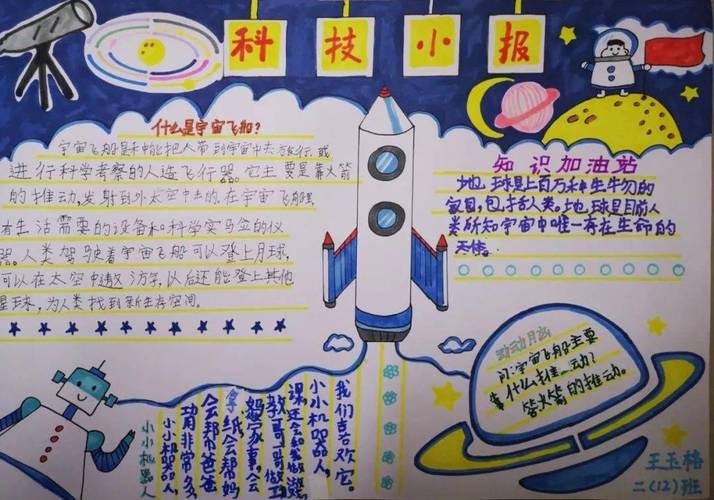 科技小报
什么是宇宙飞船?
宇宙飞船是一种能把人带到宇宙中去飞行或
进行科学考察的人造飞行器。它主要是靠火箭
的推动,发射到外太空中去的。在宇宙飞船里
有生活需要的设备和科学实验的仪
器。人类驾驶着宇宙飞船可以登上月球,
可以在太空中遨游,以后还能登上其他
星球,为人类找到新生存空间。
知识加油站
地球是上百万种生物的
家园,包括人类。地球是目前人
类所知宇宙中唯一存在生命的
天体。
小小机器人
小小机器人
用非常多,
会帮爸爸
拿纸,会帮妈
妈家事,会
教哥哥做工
课还会和爸做游
小小机器人,
我们喜欢它。
问:宇宙飞船主要
靠什么推动?
答:火箭的推动。
王玉格
二(12)班